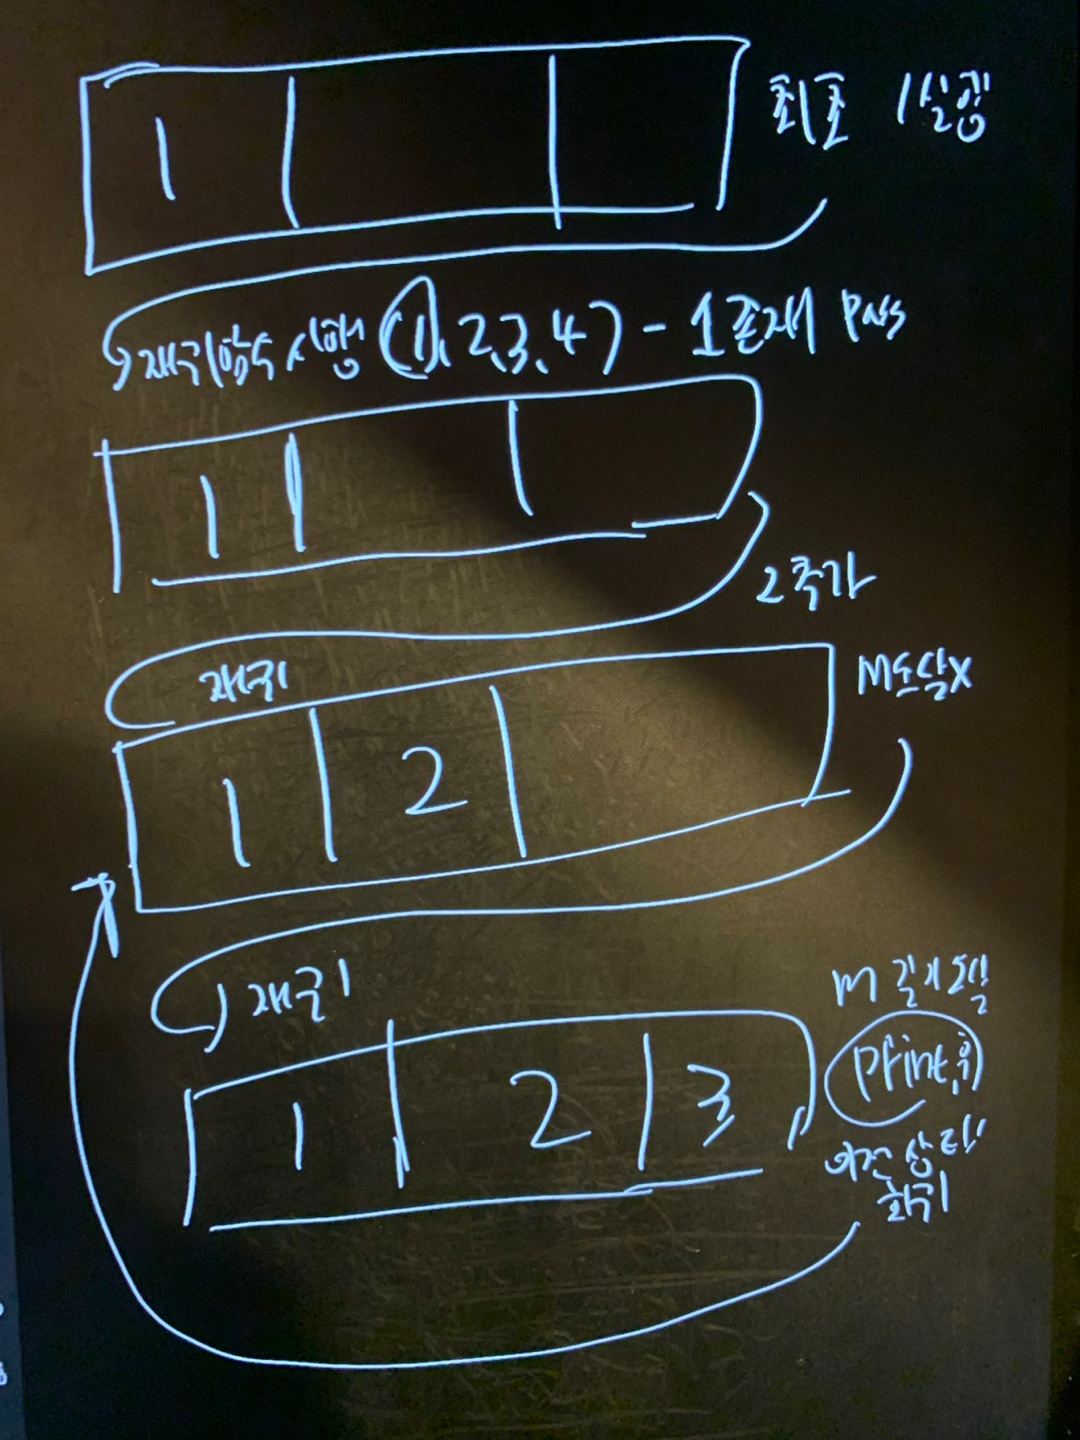 1 최초 1실행
재귀함수 시행 (1, 2, 3, 4) - 1 존재 Pass
1
2 추가
재귀
M도달X
1 2
재귀
M 길이 도달
1 2 3
Print, 후)
이전 상태
회귀